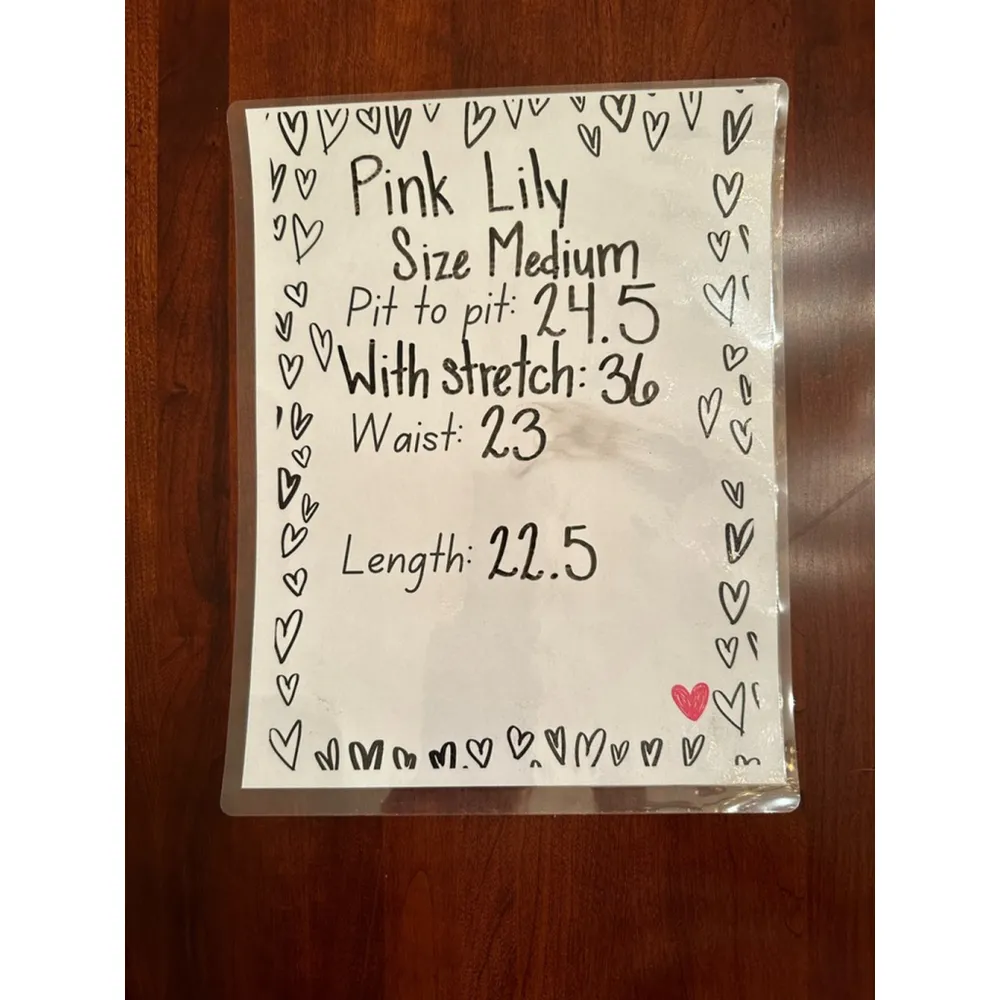 Pink Lily
Size Medium
Pit to pit: 24.5
With stretch: 36
Waist: 23
Length: 22.5